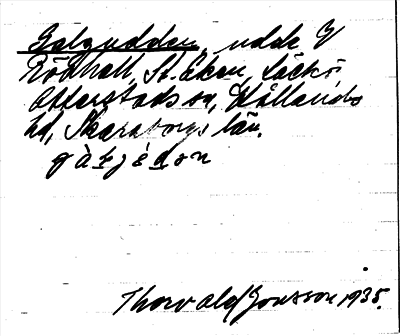 Galgudden, udde V
Rödhall, St. Eken, Läckö,
Otterstads sn, Kållands
hd, Skaraborgs län.
Thorvald Jonsson 1935.